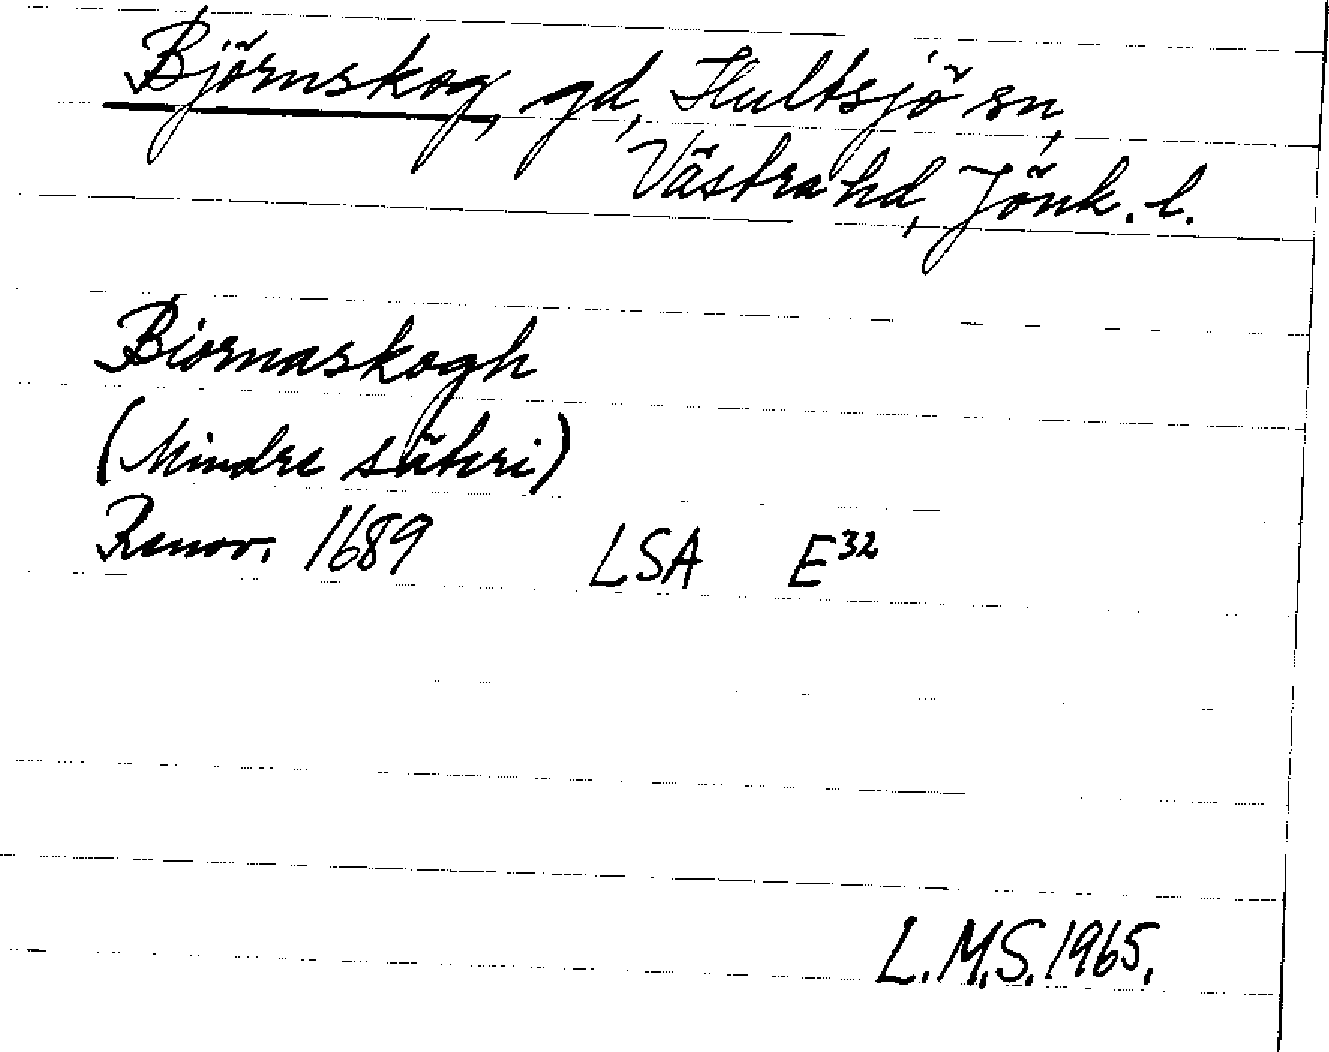 Björnskog, gd, Hultsjö sn,
Västra hd, Jönk. l.
Biornaskogh
(Mindre sähri)
Renov. 1689 LSA E32
L.M.S. 1965.